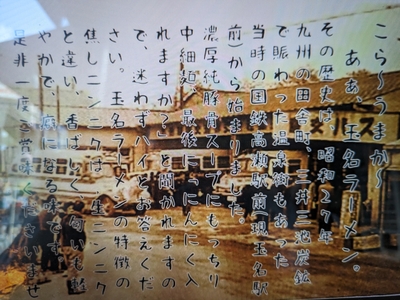 こら〜うまか〜
あぁ、玉名ラーメン。
その歴史は、昭和27年
九州の田舎町、三井三池炭鉱
で賑わった温泉街もあった
当時の国鉄高瀬駅前(現玉名駅
前)から始まりました。
濃厚純豚骨スープにもっちり
中細麺、最後に「にんにく入
れますか?」と聞かれますの
で、迷わずハイとお答えくだ
さい。玉名ラーメンの特徴の
焦しニンニクは、生ニンニク
と違い、香ばしく、匂いも軽
やかで、癖になる味です。
是非一度ご賞味くださいませ